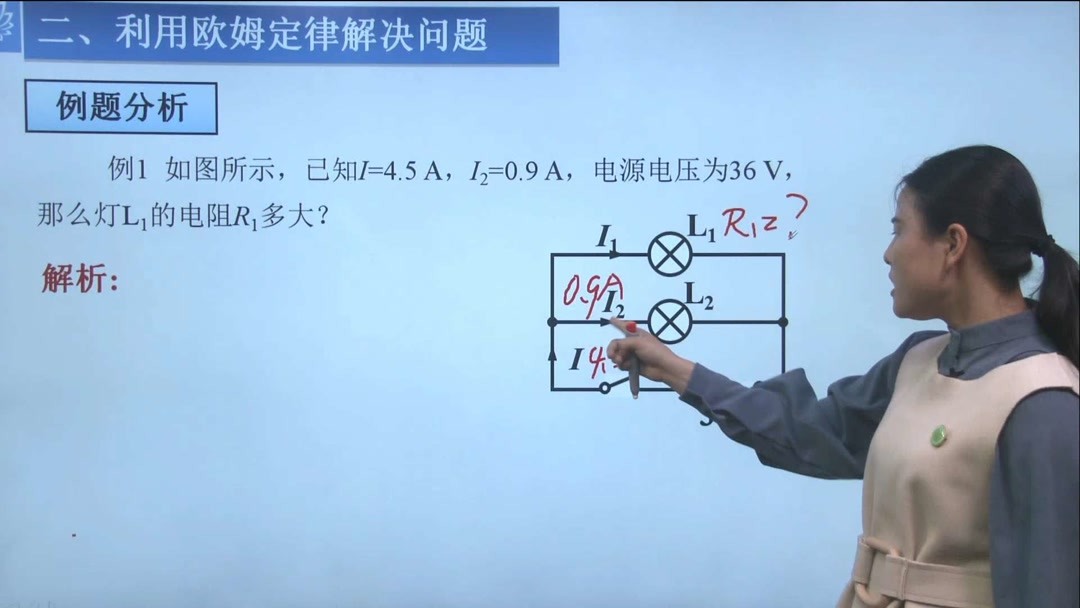 二、利用欧姆定律解决问题
例题分析
例1 如图所示，已知I=4.5 A，I₂=0.9 A，电源电压为36 V，
那么灯L₁的电阻R₁多大？
解析：
I₁ L₁ R₁=?
0.9A
I₂ L₂
I 4.